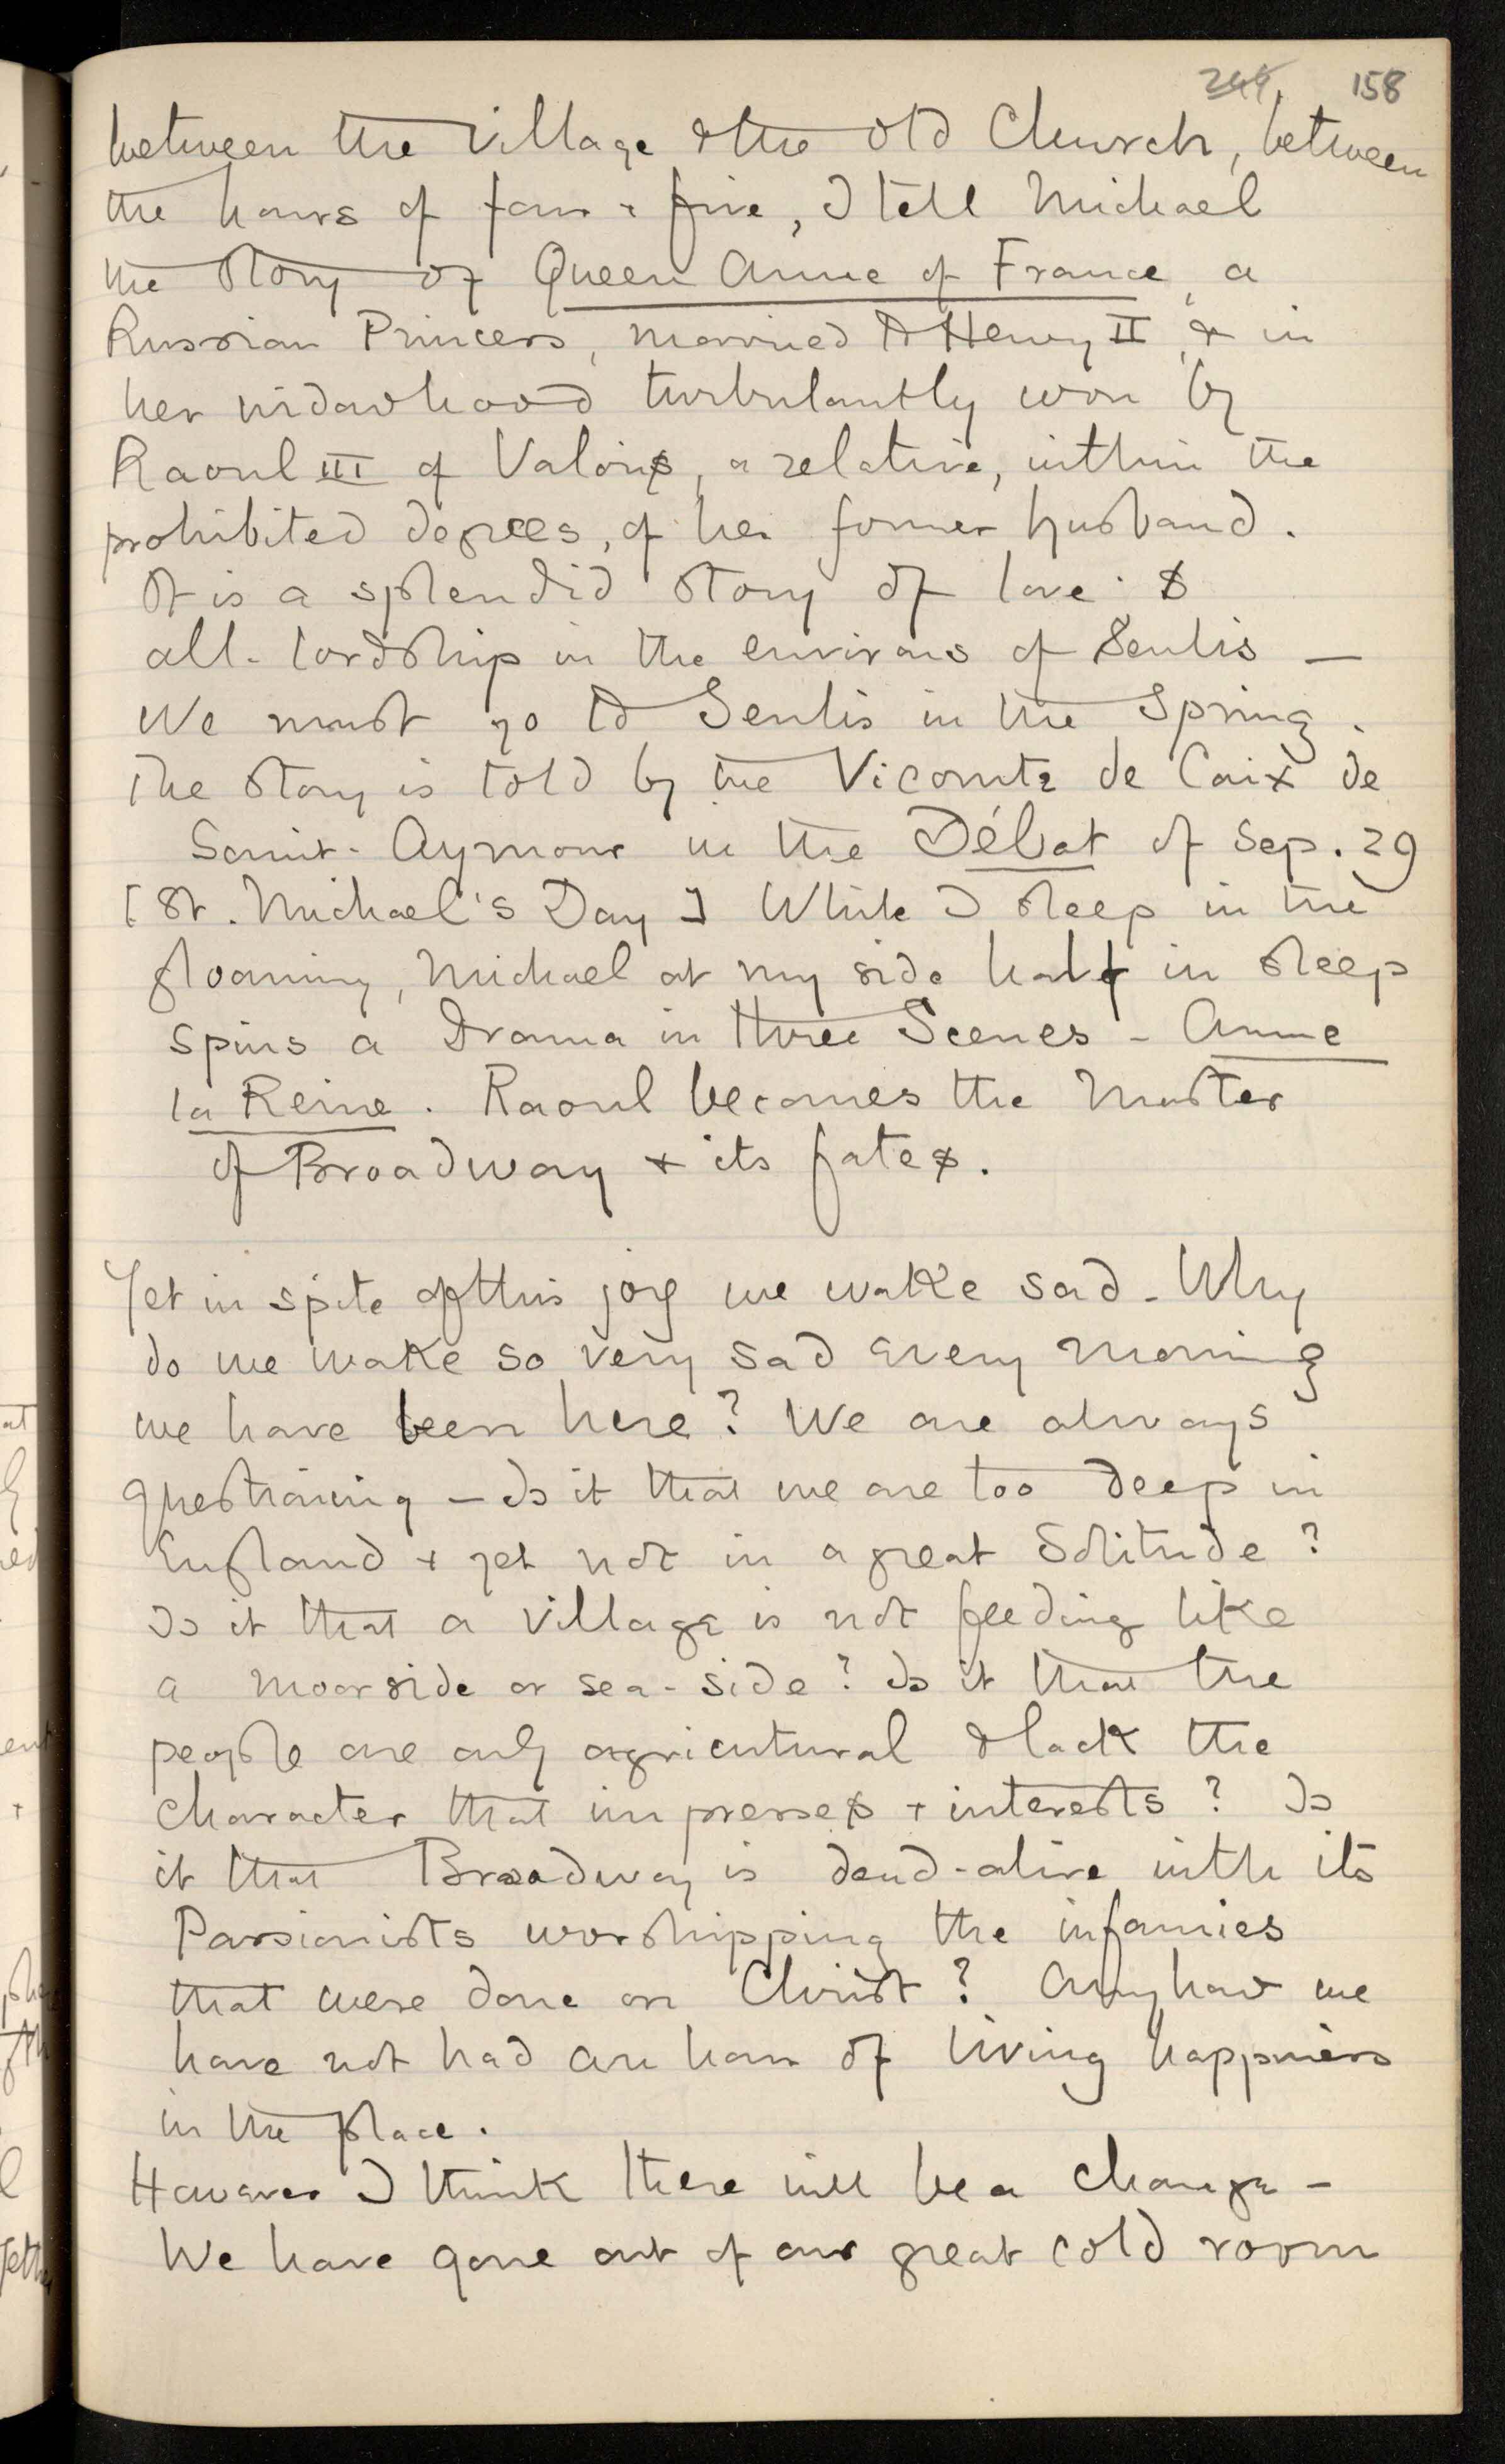 244. 158
between the village & the old Church, between
the hours of four & five, I tell Michael
the story of Queen Anne of France, a
Russian Princess, married to Henry II, & in
her widowhood turbulantly won by
Raoul III of Valois, a relative, within the
prohibited degrees, of her former husband.
It is a splendid story of love &
all-lordship in the environs of Senlis —
We must go to Senlis in the Spring.
The story is told by the Vicomte de Caix de
Saint-Aymour in the Débat of Sep. 29
[St. Michael's Day] While I sleep in the
gloaming, Michael at my side half in sleep
spins a Drama in three Scenes - Anne
la Reine. Raoul becomes the Master
of Broadway & its fates.
Yet in spite of this joy we wake sad - Why
do we wake so very sad every morning
we have been here? We are always
questioning — Is it that we are too deep in
England & yet not in a great Solitude?
Is it that a village is not feeding like
a moorside or sea-side? Is it that the
people are only agricultural & lack the
character that impresses & interests? Is
it that Broadway is dead-alive with its
Passionists worshipping the infamies
that were done on Christ? Anyhow we
have not had an hour of living happiness
in the place.
However I think there will be a change —
We have gone out of our great cold room